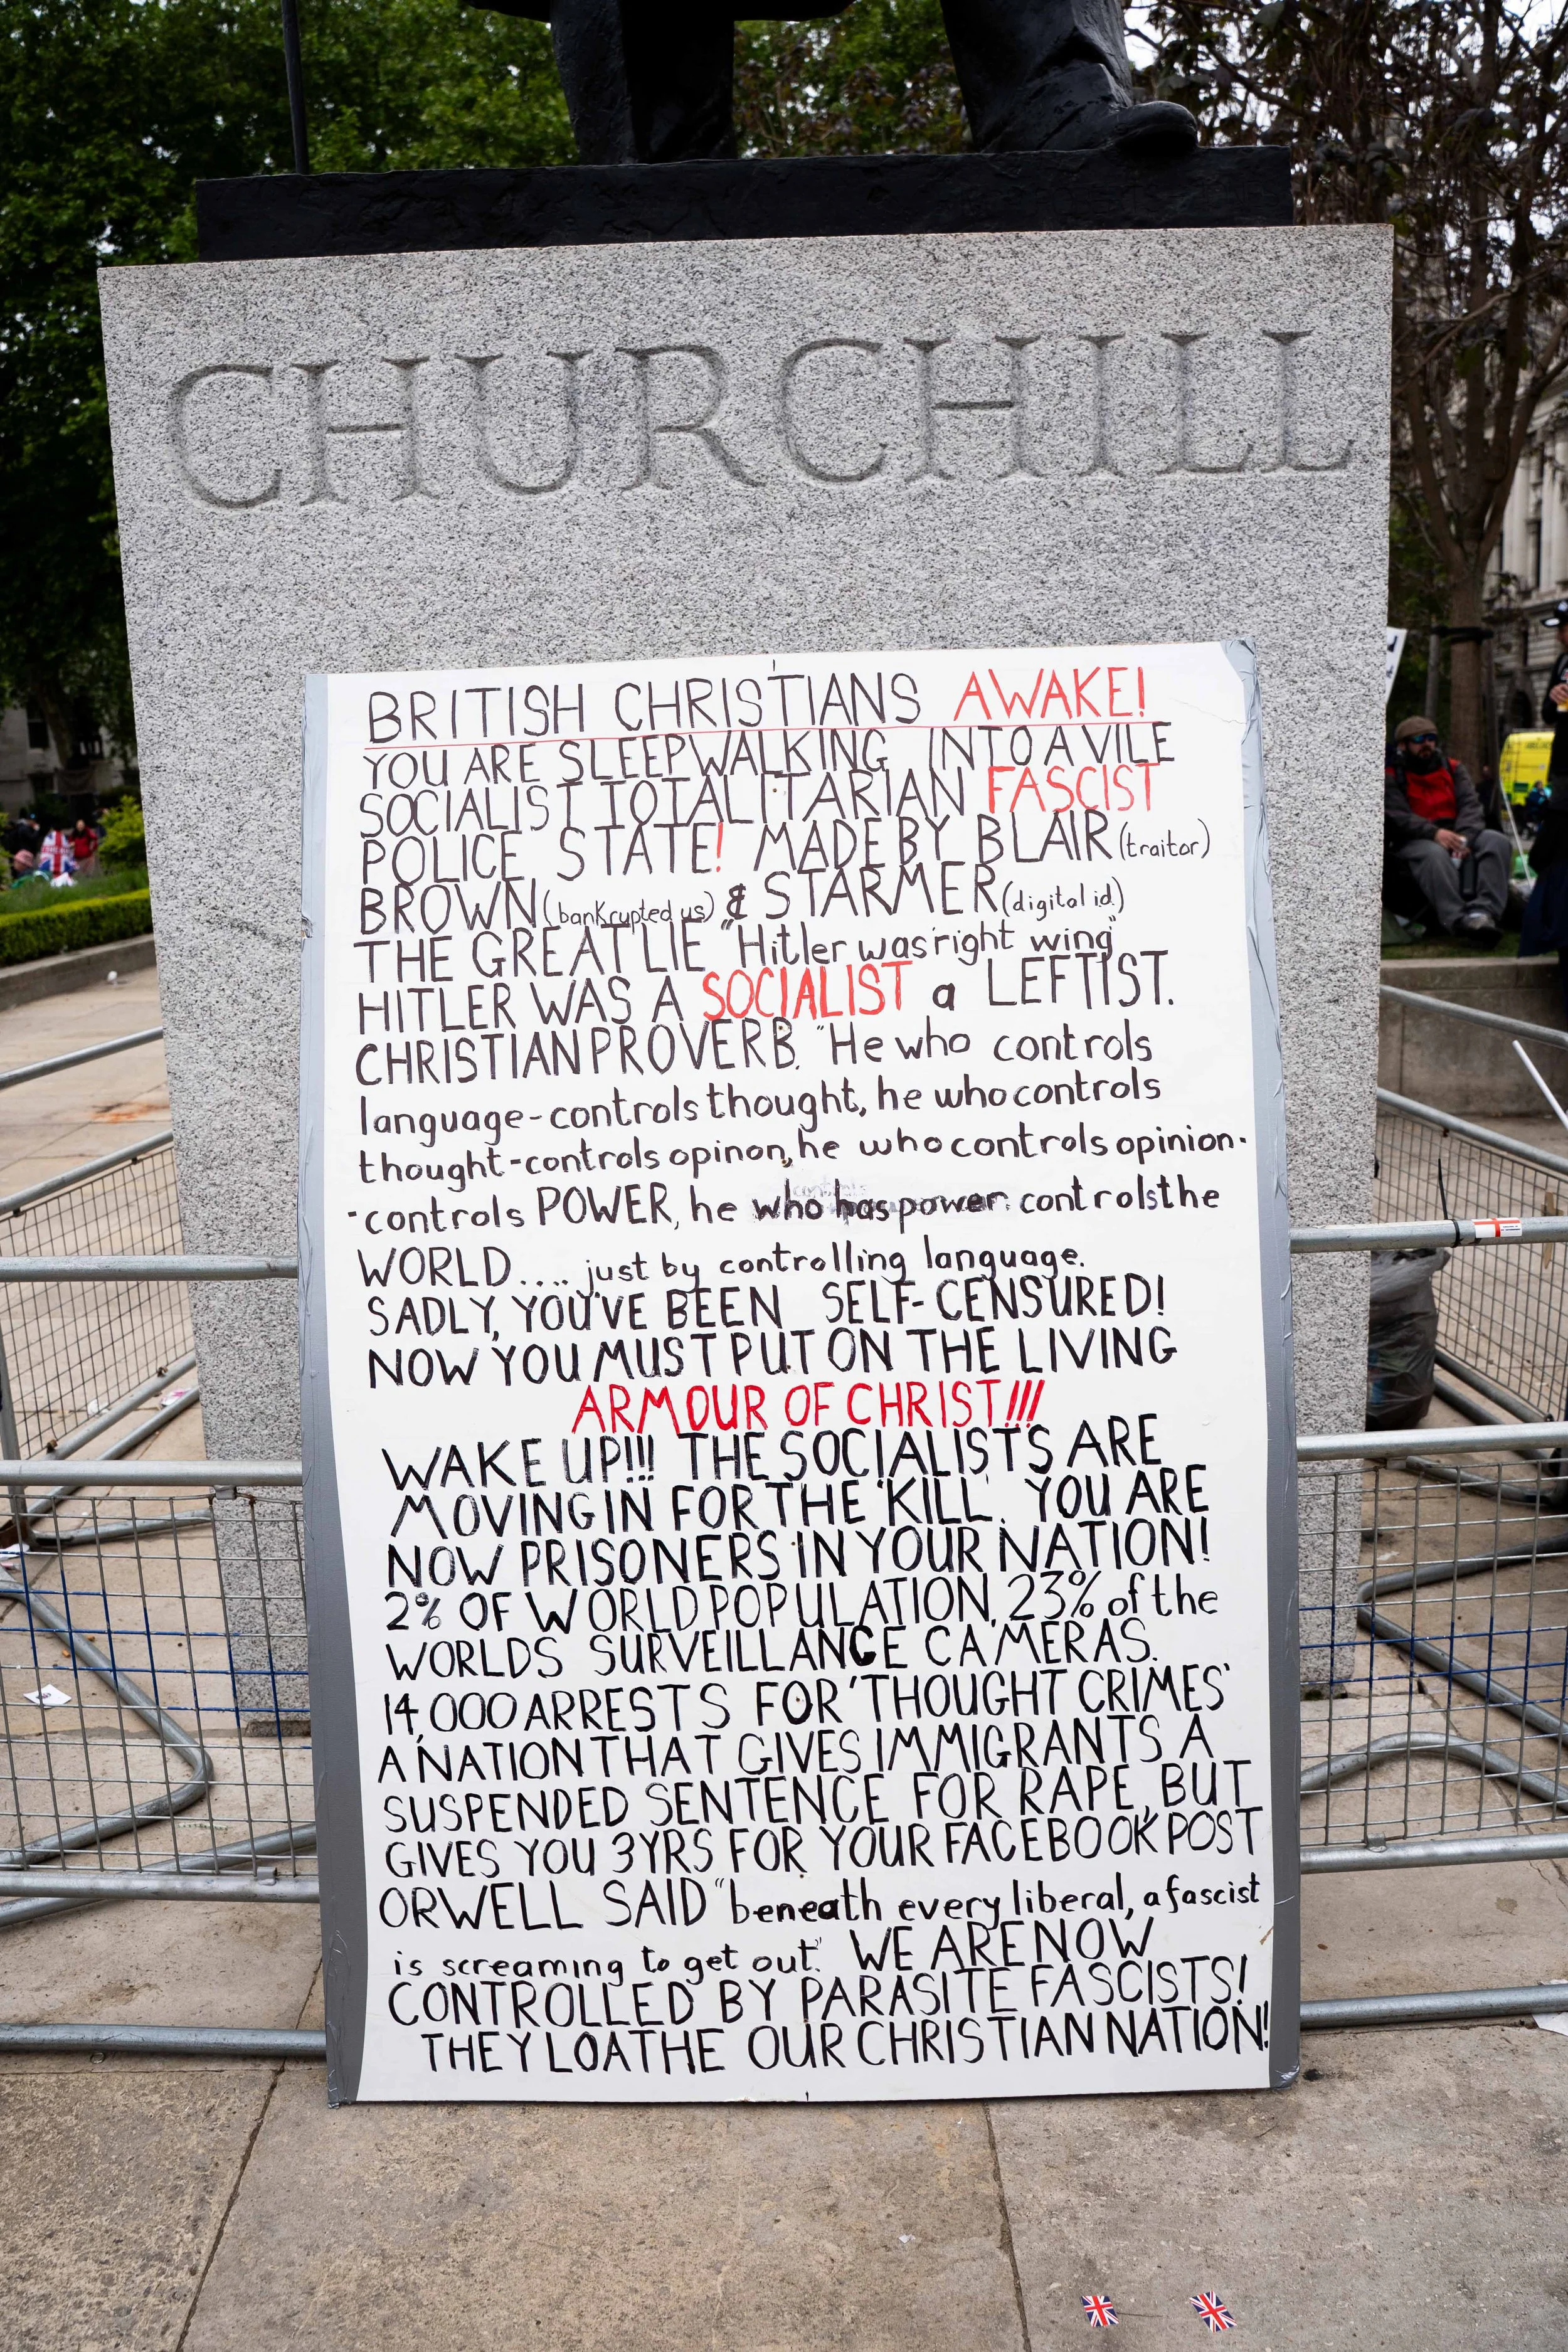 CHURCHILL
BRITISH CHRISTIANS AWAKE!
YOU ARE SLEEPWALKING INTO A VILE
SOCIALIST TOTALITARIAN FASCIST
POLICE STATE! MADE BY BLAIR (traitor)
BROWN (bankrupted us) & STARMER (digital id.)
THE GREAT LIE "Hitler was 'right wing"
HITLER WAS A SOCIALIST a LEFTIST.
CHRISTIAN PROVERB. "He who controls
language-controls thought, he who controls
thought-controls opinon, he who controls opinion-
-controls POWER, he who has power controls the
WORLD.... just by controlling language.
SADLY, YOU'VE BEEN SELF-CENSURED!
NOW YOU MUST PUT ON THE LIVING
ARMOUR OF CHRIST!!!
WAKE UP!!! THE SOCIALISTS ARE
MOVING IN FOR THE 'KILL'. YOU ARE
NOW PRISONERS IN YOUR NATION!
2% OF WORLD POPULATION, 23% of the
WORLDS SURVEILLANCE CAMERAS.
14,000 ARRESTS FOR 'THOUGHT CRIMES'
A NATION THAT GIVES IMMIGRANTS A
SUSPENDED SENTENCE FOR RAPE, BUT
GIVES YOU 3YRS FOR YOUR FACEBOOK POST
ORWELL SAID "beneath every liberal, a fascist
is screaming to get out." WE ARE NOW
CONTROLLED BY PARASITE FASCISTS!
THEY LOATHE OUR CHRISTIAN NATION!